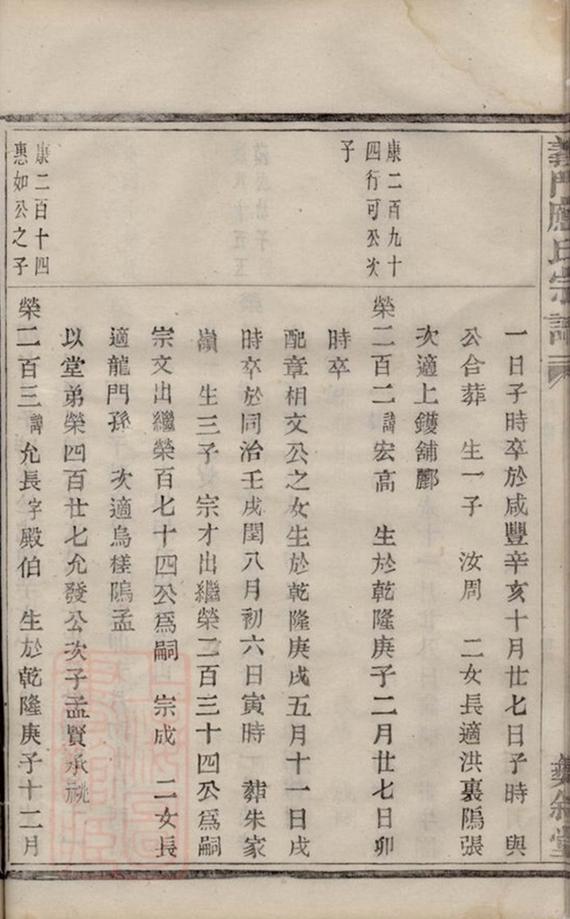 義門應氏宗譜
一日子時卒於咸豐辛亥十月廿七日子時 與
公合葬 生一子 汝周 二女長適洪裏隝張
次適上鑊舖酈
康二百九十
四行可公次
子
榮二百二諱宏高 生於乾隆庚子二月廿七日卯
時卒
配章相文公之女生於乾隆庚戌五月十一日戌
時卒於同治壬戌閏八月初六日寅時 葬朱家
嶺 生三子 宗才出繼榮二百三十四公爲嗣
宗文出繼榮百七十四公爲嗣 宗成 二女長
適龍門孫 次適烏樣隝孟
以堂弟榮四百廿七允發公次子孟賢承祧
康二百十四
惠如公之子
榮二百三諱允長字殿伯 生於乾隆庚子十二月